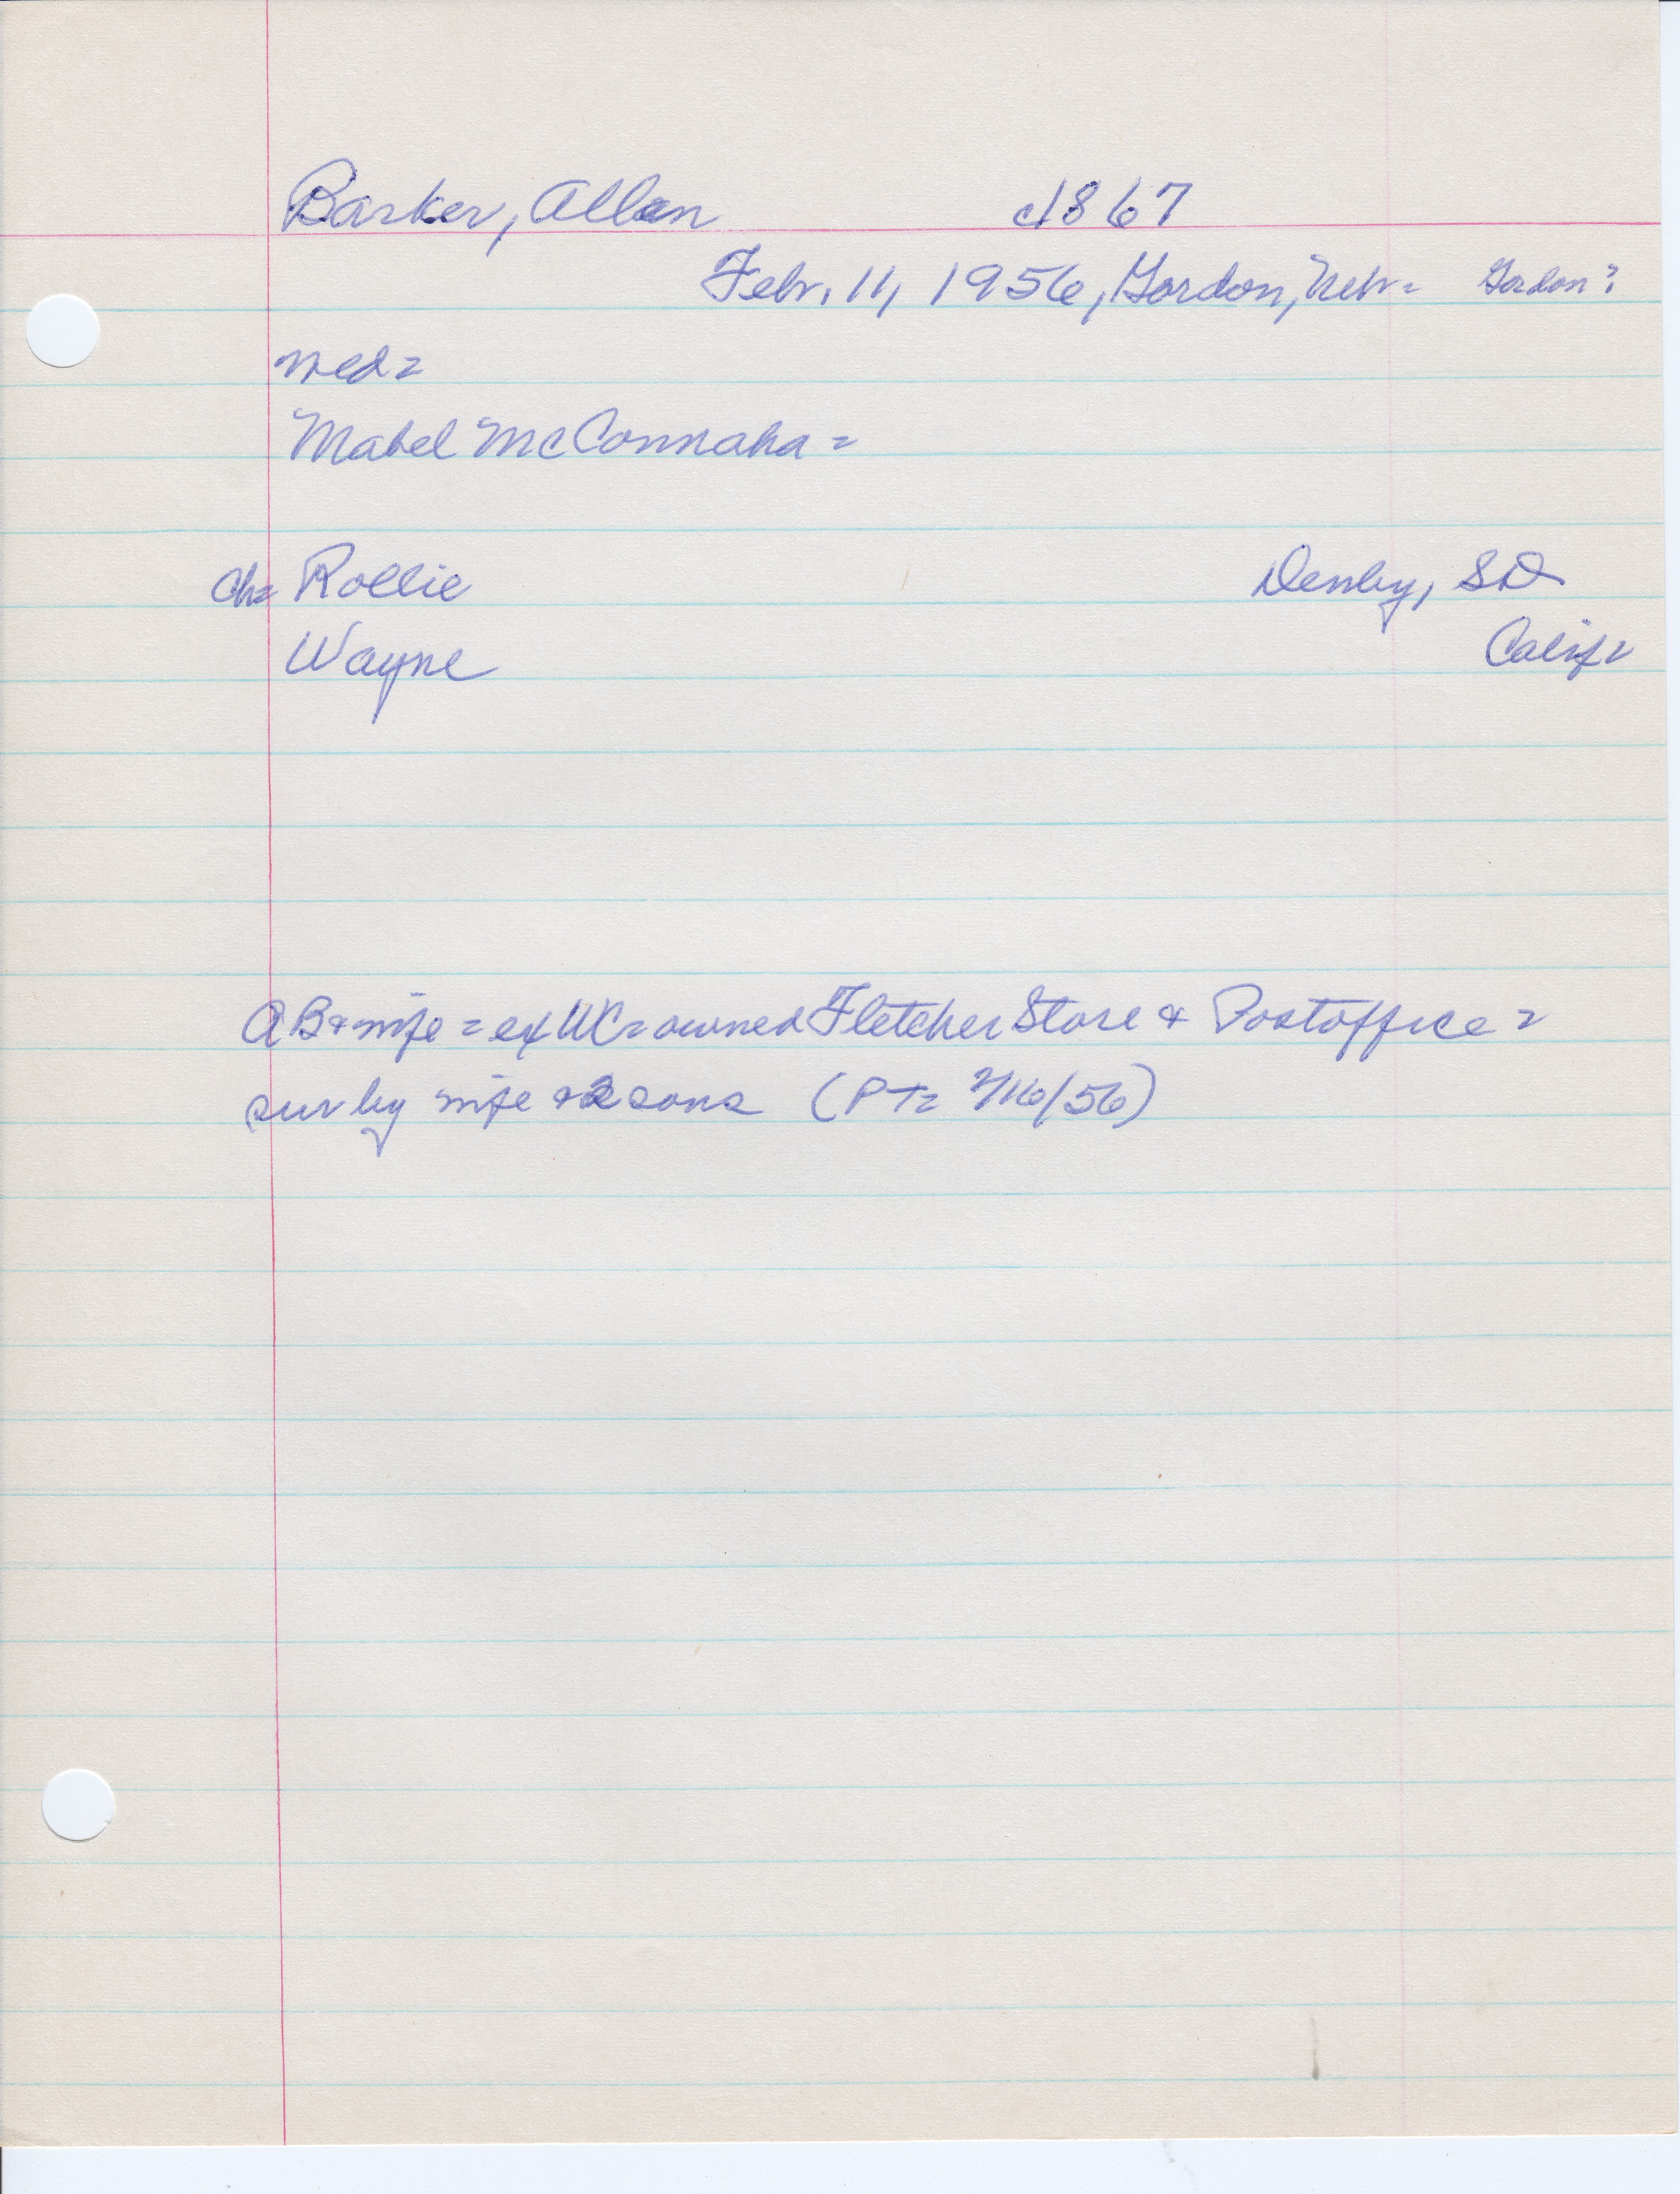 Barker, Allen c1867
Febr. 11, 1956, Gordon, Nebr= Gordon?
med=
Mabel McConnaha=
Ch= Rollie Denby, SD
Wayne Calif=
AB & wife = ex WC= owned Fletcher Store & Postoffice=
sur by wife & 2 sons (PT= 2/16/56)